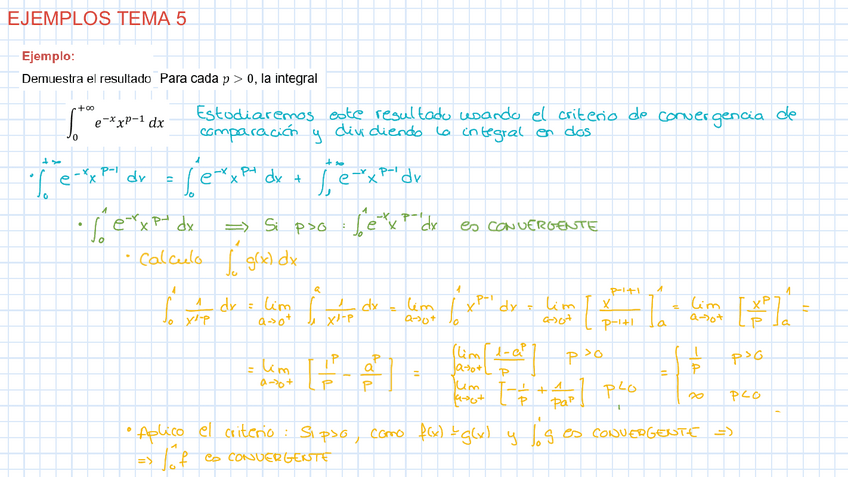 EJEMPLOS TEMA 5
Ejemplo:
Demuestra el resultado Para cada p > 0, la integral
∫₀^{+∞} e^{-x} x^{p-1} dx
Estudiaremos este resultado usando el criterio de convergencia de
comparación y dividiendo la integral en dos
• ∫₀^{+∞} e^{-x} x^{p-1} dx = ∫₀^1 e^{-x} x^{p-1} dx + ∫₁^{+∞} e^{-x} x^{p-1} dx
• ∫₀^1 e^{-x} x^{p-1} dx ⟹ Si p>0 : ∫₀^1 e^{-x} x^{p-1} dx es CONVERGENTE
• Calculo ∫₀^1 g(x) dx
∫₀^1 1/x^{1-p} dx = lim_{a→0+} ∫₁^a 1/x^{1-p} dx = lim_{a→0+} ∫₀^1 x^{p-1} dx = lim_{a→0+} [x^{p-1+1}/(p-1+1)]_a^1 = lim_{a→0+} [x^p/p]_a^1 =
= lim_{a→0+} [1^p/p - a^p/p] = { lim_{a→0+} [(1-a^p)/p] p>0 = { 1/p p>0
lim_{a→0+} [-1/p + 1/(pa^p)] p<0 ∞ p<0
• Aplico el criterio : Si p>0, como f(x) ≤ g(x) y ∫₀^1 g es CONVERGENTE ⟹
⟹ ∫₀^1 f es CONVERGENTE